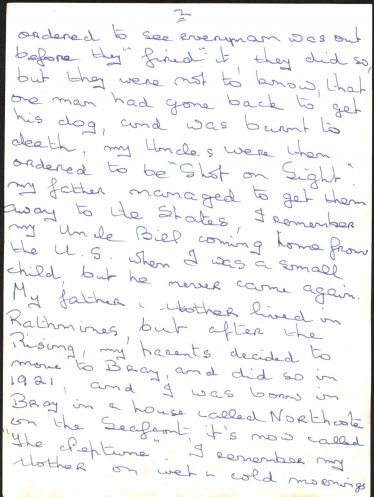 2
ordered to see everyman was out
before they "fired" it, they did so,
but they were not to know, that
one man had gone back to get
his dog, and was burnt to
death, my Uncles were then
ordered to be "Shot on Sight".
my father managed to get them
away to the States, I remember
my Uncle Bill coming home from
the U.S. when I was a small
child, but he never came again.
My father & Mother lived in
Rathmines, but after the
Rising, my parents decided to
move to Bray, and did so in
1921, and I was born in
Bray in a house called Northcote
on the Seafront, it's now called
"The Neptune". I remember my
Mother on wet & cold mornings